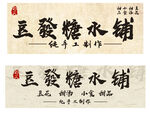 豆發糖水铺
纯手工制作
豆發糖水铺
豆花 甜汤 小食 甜品
纯手工制作